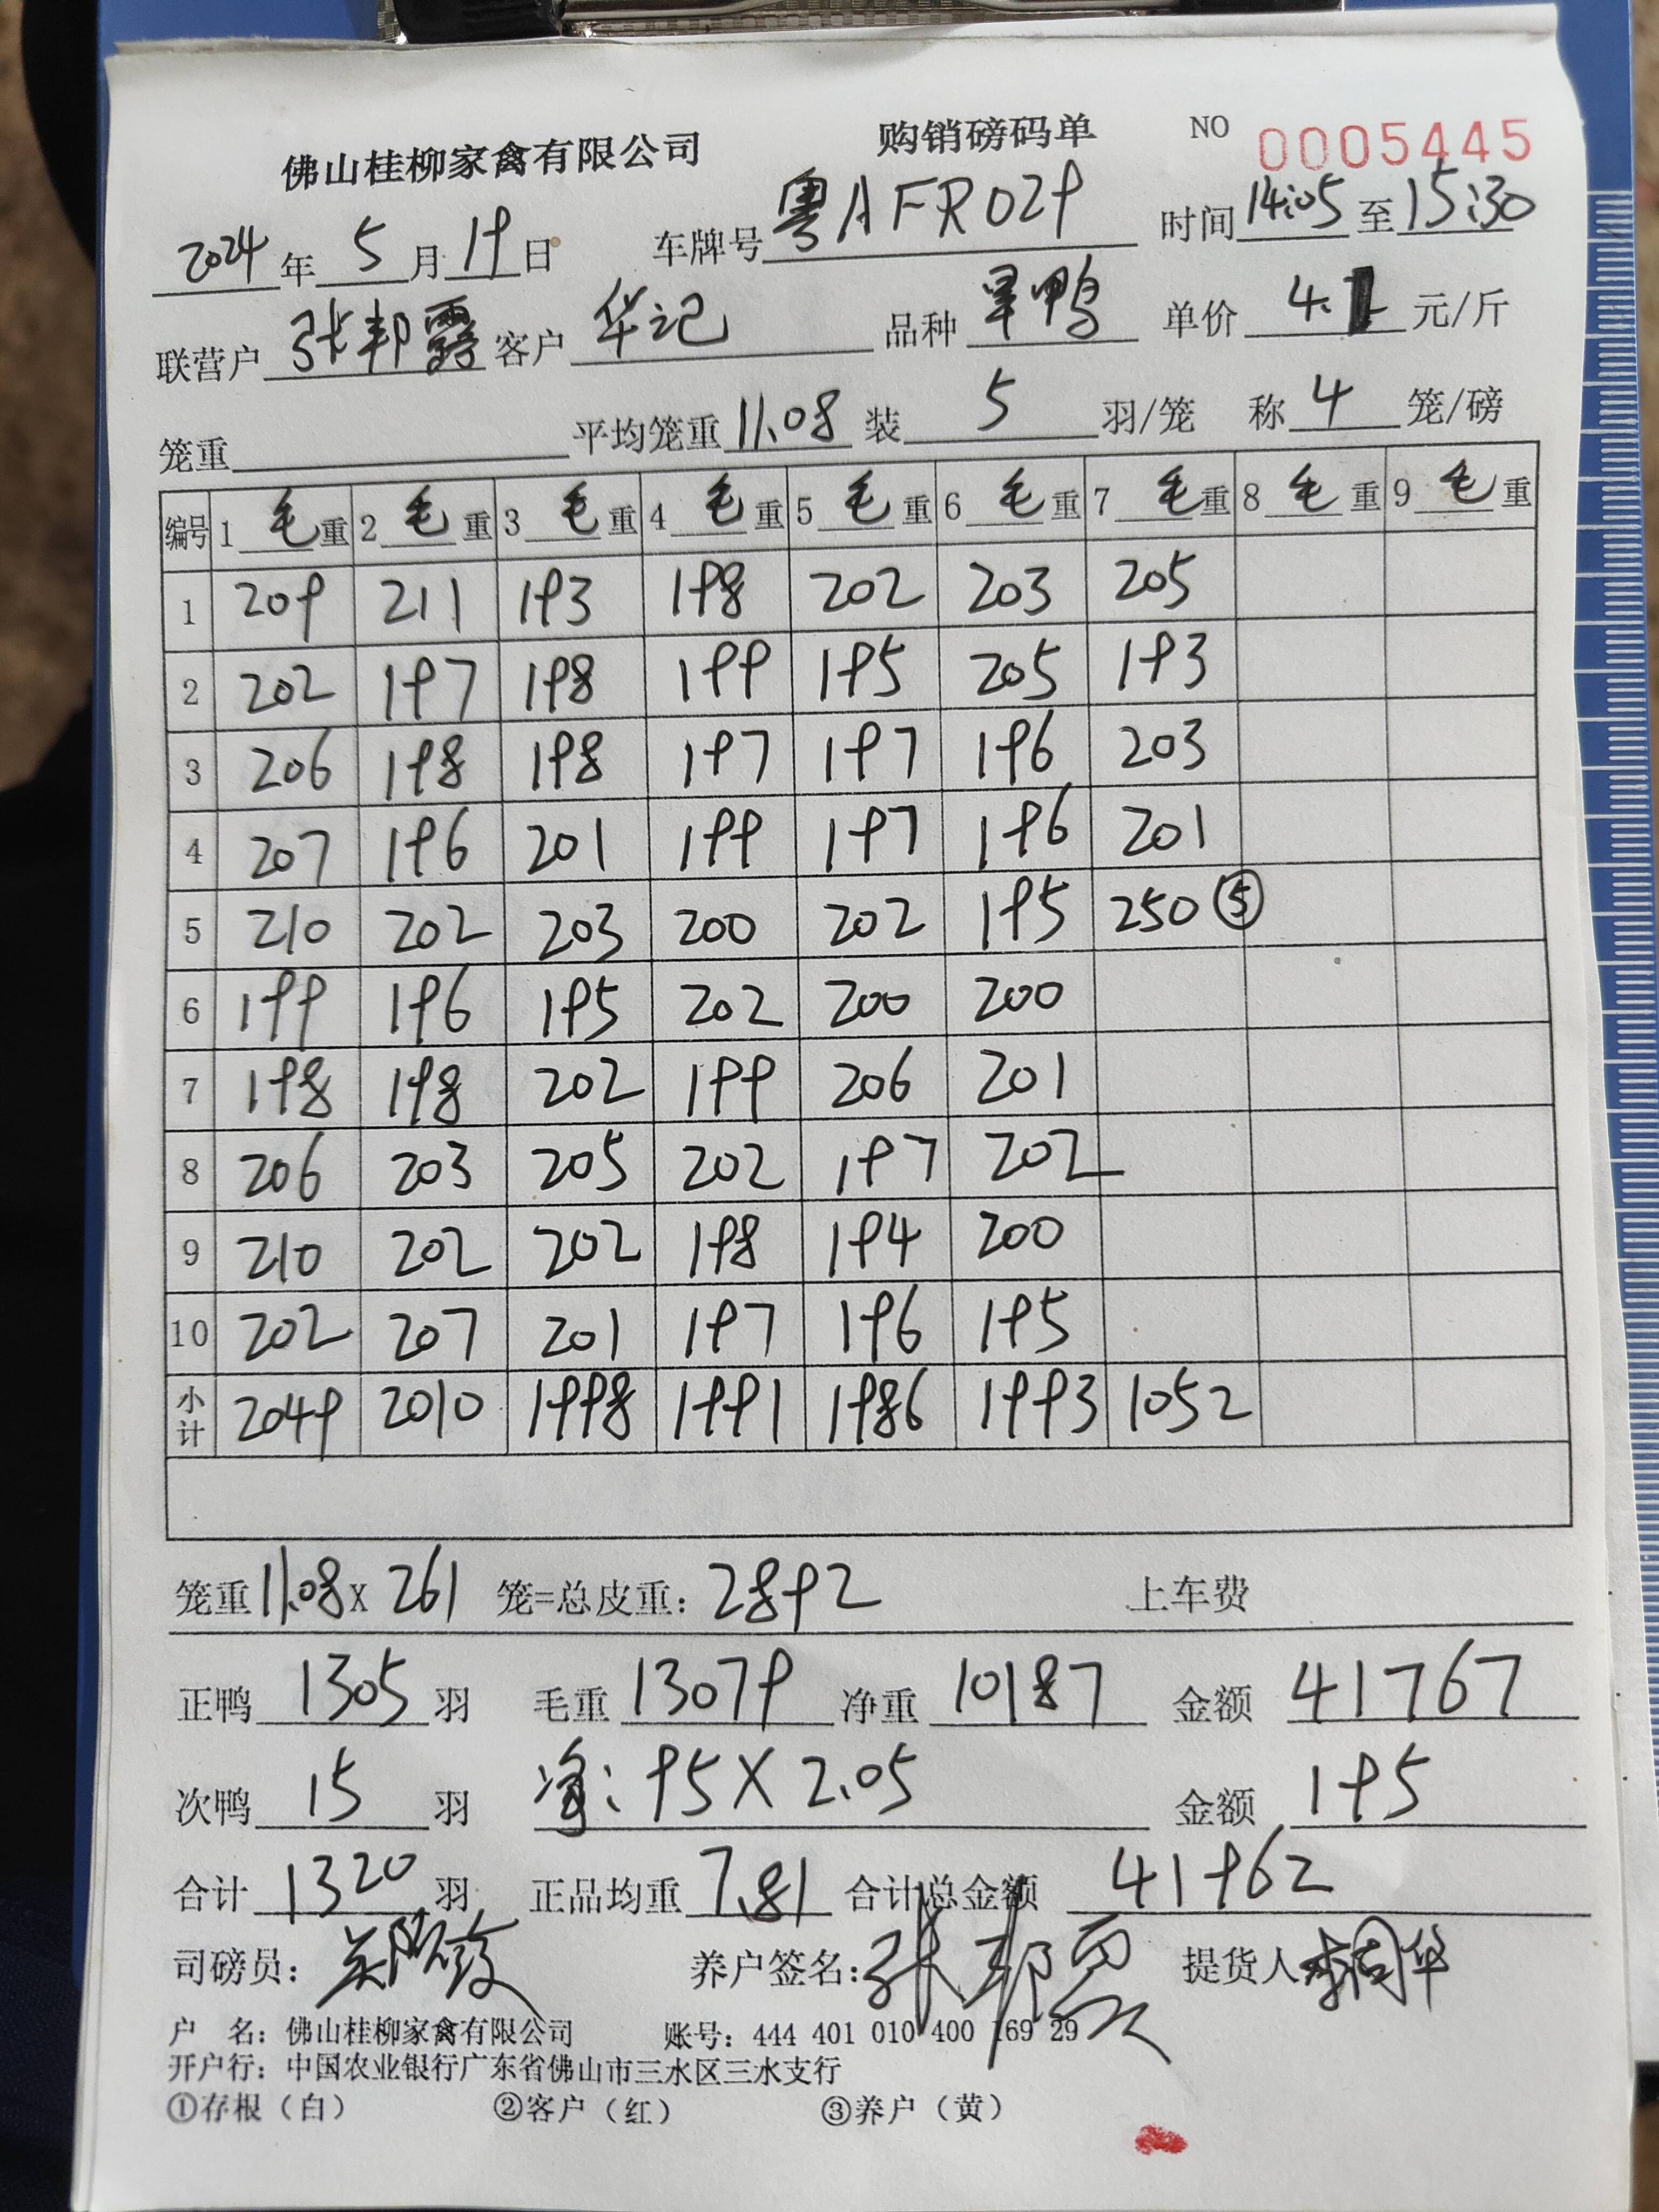 佛山桂柳家禽有限公司 购销磅码单 NO 0005445
2024年5月19日 车牌号粤AFR029 时间14:05至15:30
联营户张邦霞 客户华记 品种旱鸭 单价4.1元/斤
笼重 平均笼重11.08 装5羽/笼 称4笼/磅
编号 1毛重 2毛重 3毛重 4毛重 5毛重 6毛重 7毛重 8毛重 9毛重
1 209 211 193 198 202 203 205
2 202 197 198 199 195 205 193
3 206 198 198 197 197 196 203
4 207 196 201 199 197 196 201
5 210 202 203 200 202 195 250⑤
6 199 196 195 202 200 200
7 198 198 202 199 206 201
8 206 203 205 202 197 202
9 210 202 202 198 194 200
10 202 207 201 197 196 195
小计 2049 2010 1998 1991 1986 1993 1052
笼重11.08X261 笼=总皮重：2892 上车费
正鸭1305羽 毛重13079 净重10187 金额41767
次鸭15羽 净：95X2.05 金额195
合计1320羽 正品均重7.81 合计总金额41962
司磅员： 养户签名：张邦霞 提货人
户 名：佛山桂柳家禽有限公司 账号：444 401 010 400 169 29
开户行：中国农业银行广东省佛山市三水区三水支行
①存根（白） ②客户（红） ③养户（黄）